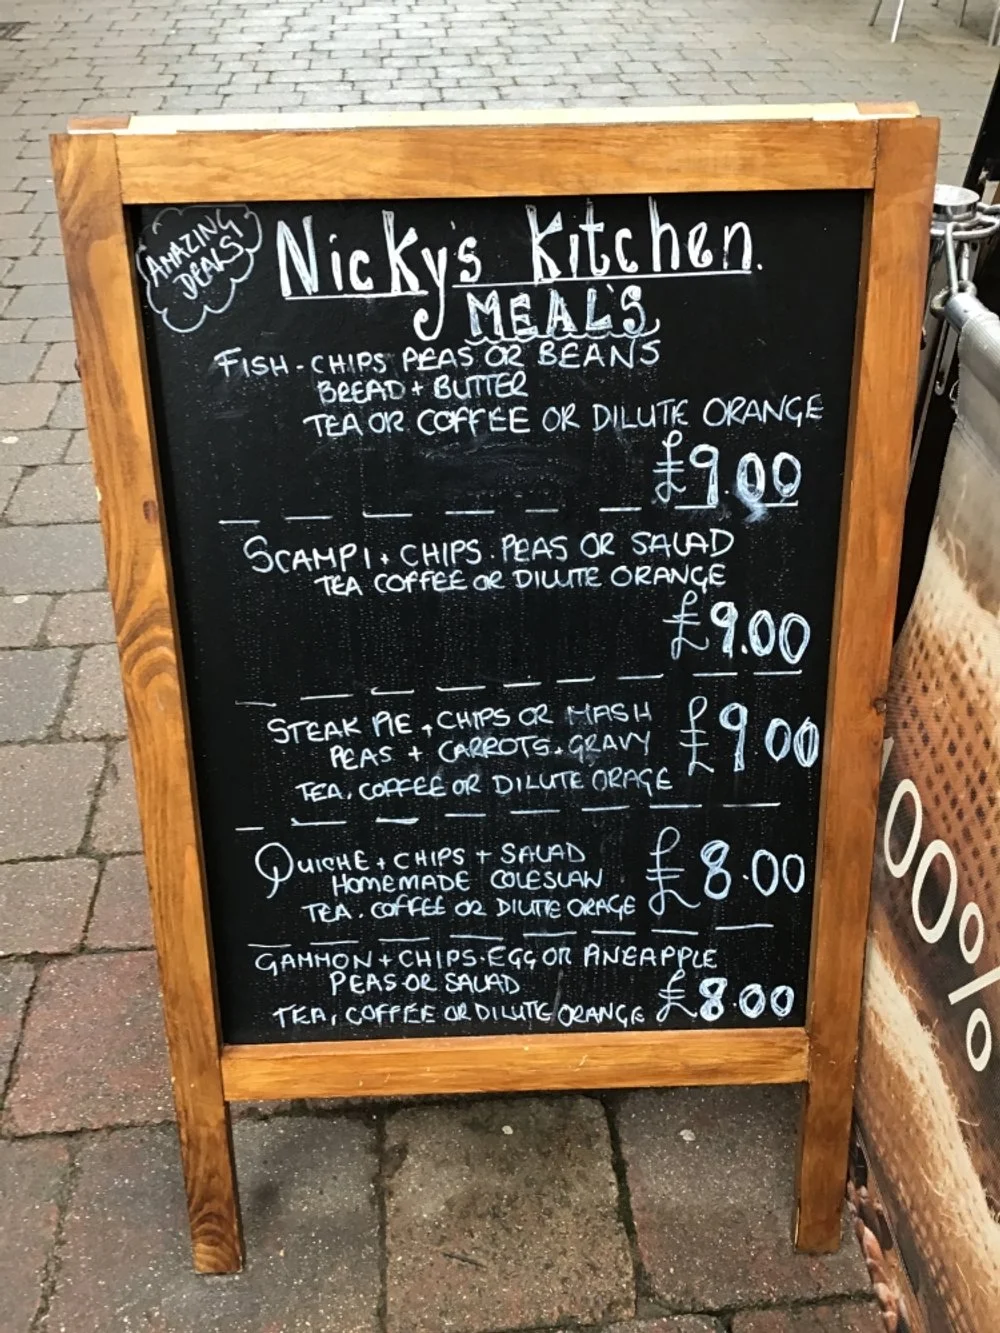 AMAZING
DEALS
Nicky's Kitchen.
MEAL'S
FISH - CHIPS PEAS OR BEANS
BREAD + BUTTER
TEA OR COFFEE OR DILUTE ORANGE
£9.00
SCAMPI + CHIPS . PEAS OR SALAD
TEA COFFEE OR DILUTE ORANGE
£9.00
STEAK PIE + CHIPS OR MASH
PEAS + CARROTS + GRAVY
£9 00
TEA, COFFEE OR DILUTE ORAGE
QUICHE + CHIPS + SALAD
HOMEMADE COLESLAW
£8.00
TEA. COFFEE OR DILUTE ORAGE
GAMMON + CHIPS. EGG OR PINEAPPLE
PEAS OR SALAD
TEA, COFFEE OR DILUTE ORANGE £8.00
00%